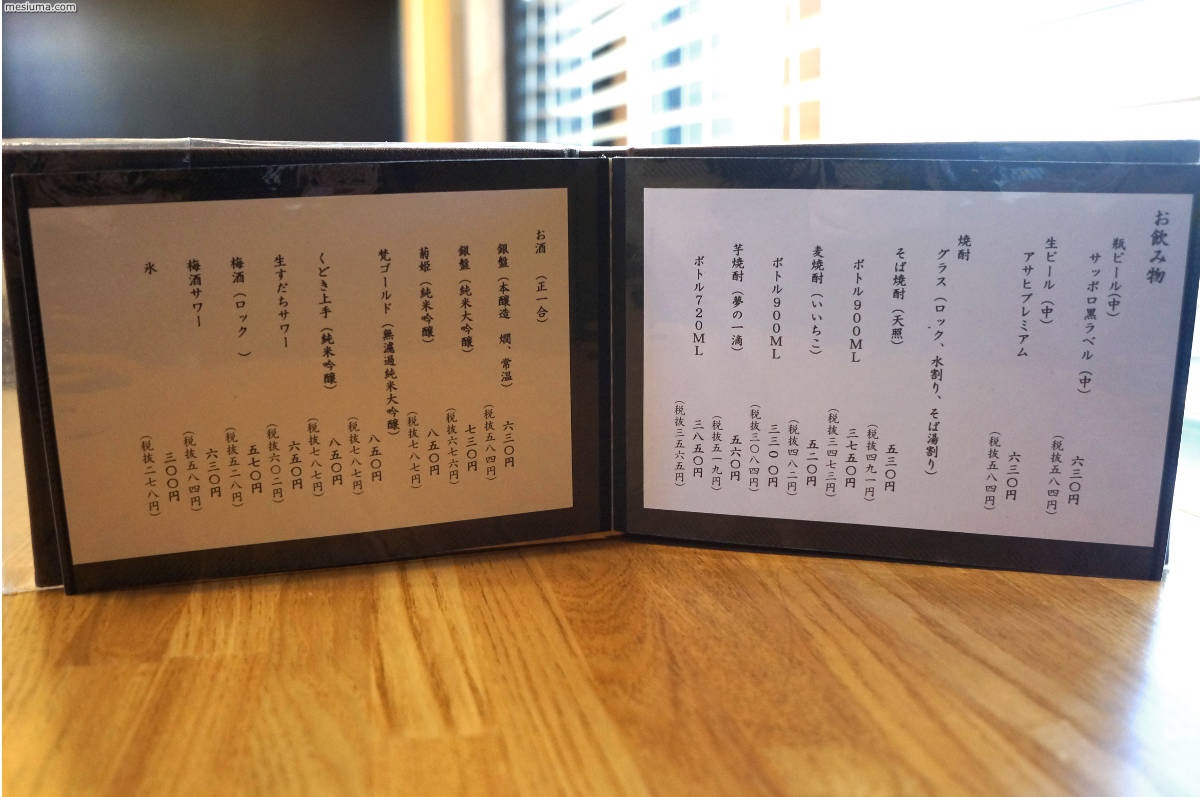 mesiuma.com
お飲み物
瓶ビール(中)
サッポロ黒ラベル(中)
六三〇円
(税抜五八四円)
生ビール(中)
アサヒプレミアム
六三〇円
(税抜五八四円)
焼酎
グラス(ロック、水割り、そば湯割り)
そば焼酎(天照)
五三〇円
(税抜四九一円)
ボトル900ML
三七五〇円
(税抜三四七三円)
麦焼酎(いいちこ)
五二〇円
(税抜四八二円)
ボトル900ML
三三〇〇円
(税抜三〇八四円)
芋焼酎(夢の一滴)
五六〇円
(税抜五一九円)
ボトル720ML
三八五〇円
(税抜三五六五円)
お酒 (正一合)
銀盤(本醸造 燗、常温)
六三〇円
(税抜五八四円)
銀盤(純米大吟醸)
七三〇円
(税抜六七六円)
菊姫(純米吟醸)
八五〇円
(税抜七八七円)
梵ゴールド(無濾過純米大吟醸)
八五〇円
(税抜七八七円)
くどき上手(純米吟醸)
八五〇円
(税抜七八七円)
生すだちサワー
六五〇円
(税抜六〇二円)
梅酒(ロック )
五七〇円
(税抜五二八円)
梅酒サワー
六三〇円
(税抜五八四円)
氷
三〇〇円
(税抜二七八円)